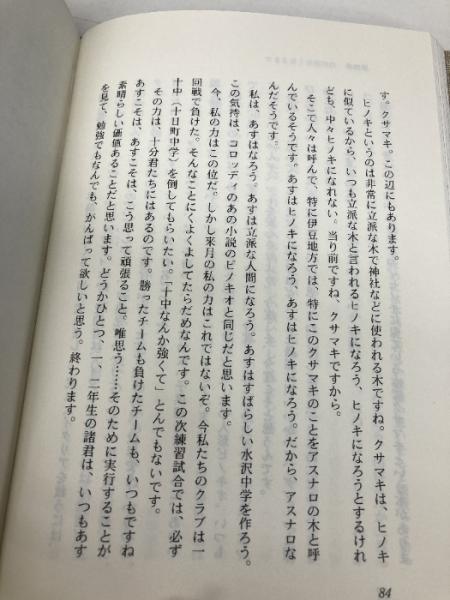 す。クサマキ。この辺にもあります。
ヒノキというのは非常に立派な木で神社などに使われる木ですね。クサマキは、ヒノキ
に似ているから、いつも立派な木と言われるヒノキになろう、ヒノキになろうとするけれ
ども、中々ヒノキになれない。当り前ですね、クサマキですから。
そこで人々は呼んで、特に伊豆地方では、特にこのクサマキのことをアスナロの木と呼
んでいるそうです。あすはヒノキになろう、あすはヒノキになろう。だから、アスナロな
んだそうです。
私は、あすはなろう。あすは立派な人間になろう。あすはすばらしい水沢中学を作ろう。
この気持は、コロッディのあの小説のピノキオと同じだと思います。
今、私の力はこの位だ。しかし来月の私の力はこれではないぞ。今私たちのクラブは一
回戦で負けた。そんなことにくよくよしてたらだめなんです。この次練習試合では、必ず
十中（十日町中学）を倒してもらいたい。「十中なんか強くて」とんでもないです。
その力は、十分君たちにはあるのです。勝ったチームも負けたチームも、いつもですね
あすこそは、あすこそは、こう思って頑張ること。唯思う……そのために実行することが
素晴らしい価値あることだと思います。どうかひとつ、一、二年生の諸君は、いつもあす
を見て、勉強でもなんでも、がんばって欲しいと思う。終わります。
84